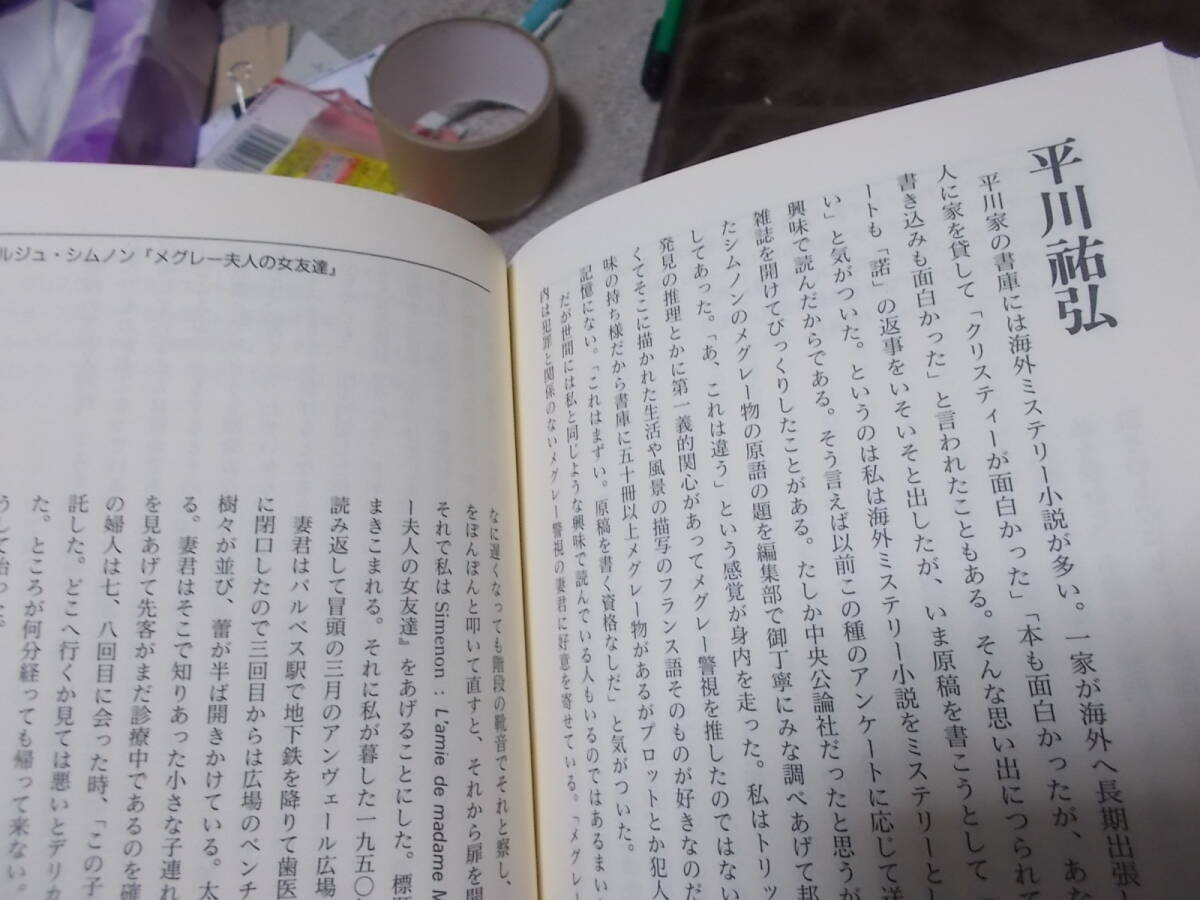 平川祐弘
平川家の書庫には海外ミステリー小説が多い。一家が海外へ長期出張
人に家を貸して「クリスティーが面白かった」「本も面白かったが、あな
書き込みも面白かった」と言われたこともある。そんな思い出につられて
ートも「諾」の返事をいそいそと出したが、いま原稿を書こうとして
い」と気がついた。というのは私は海外ミステリー小説をミステリーとし
興味で読んだからである。そう言えば以前この種のアンケートに応じて送
雑誌を開けてびっくりしたことがある。たしか中央公論社だったと思うが
たシムノンのメグレー物の原語の題を編集部で御丁寧にみな調べあげて邦
してあった。「あ、これは違う」という感覚が身内を走った。私はトリッ
発見の推理とかに第一義的関心があってメグレー警視を推したのではない
くてそこに描かれた生活や風景の描写のフランス語そのものが好きなのだ
味の持ち様だから書庫に五十冊以上メグレー物があるがプロットとか犯人
記憶にない。「これはまずい。原稿を書く資格なしだ」と気がついた。
だが世間には私と同じような興味で読んでいる人もいるのではあるまい
内は犯罪と関係のないメグレー警視の妻君に好意を寄せている。「メグレー
ルジュ・シムノン「メグレー夫人の女友達」
なに遅くなっても階段の靴音でそれと察し、
をぽんぽんと叩いて直すと、それから扉を開
それで私は Simenon : L'amie de madame M
ー夫人の女友達』をあげることにした。標
まきこまれる。それに私が暮した一九五〇
読み返して冒頭の三月のアンヴェール広場
妻君はバルベス駅で地下鉄を降りて歯医
に閉口したので三回目からは広場のベンチ
樹々が並び、蕾が半ば開きかけている。太
る。妻君はそこで知りあった小さな子連れ
を見あげて先客がまだ診療中であるのを確
の婦人は七、八回目に会った時、「この子
託した。どこへ行くか見ては悪いとデリカ
た。ところが何分経っても帰って来ない。